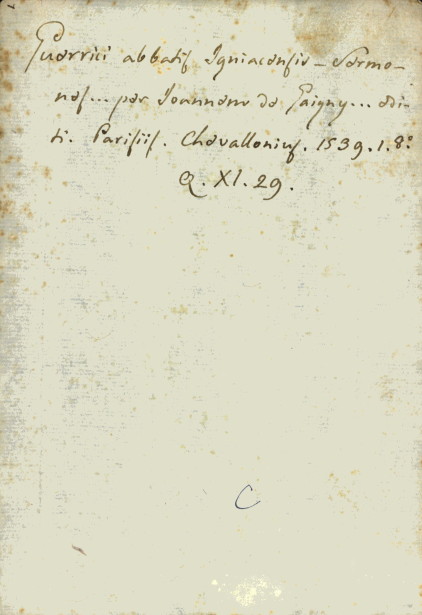 Guerrici abbatis Igniacensis – Sermo-
nes... per Joannem de Gaigny... edi-
ti. Parisiis. Chevallonius. 1539. 1. 8.º
Q. XI. 29.
C